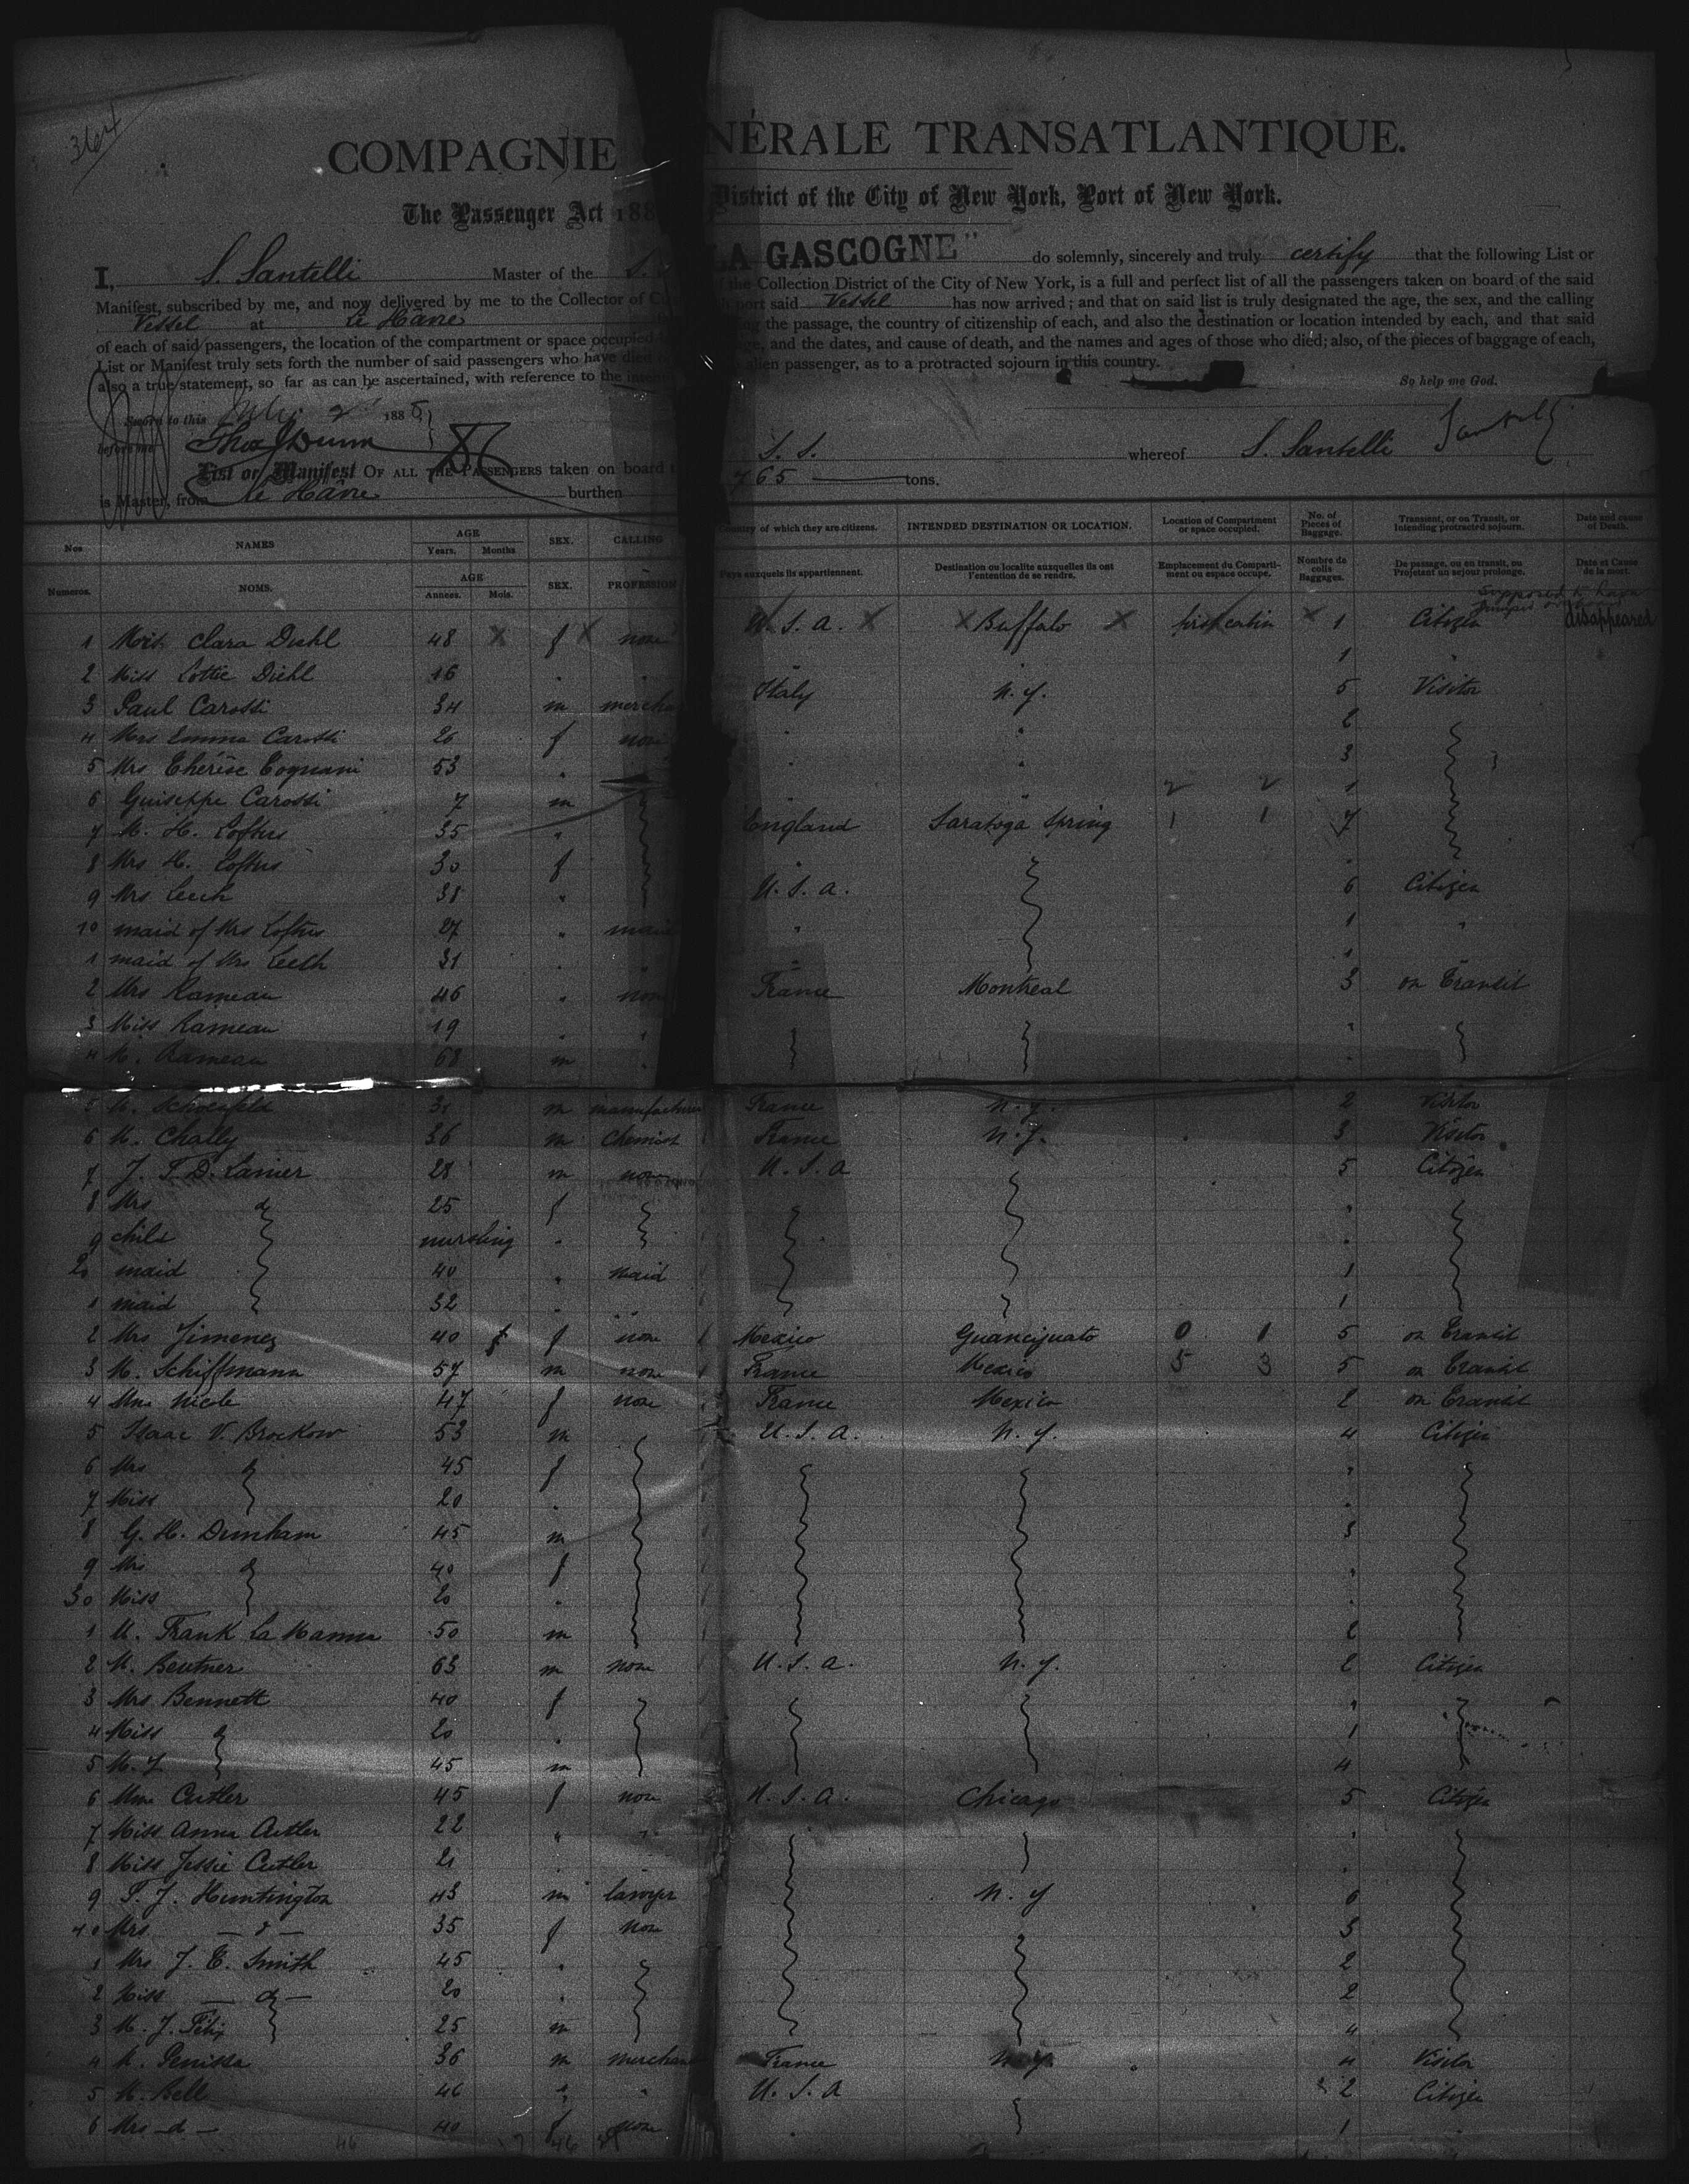 364
COMPAGNIE NÉRALE TRANSATLANTIQUE.
The Passenger Act 188 District of the City of New York, Port of New York.
I, S. Santelli Master of the S. LA GASCOGNE" do solemnly, sincerely and truly certify that the following List or
Manifest, subscribed by me, and now delivered by me to the Collector of the Collection District of the City of New York, is a full and perfect list of all the passengers taken on board of the said
Vessel at Le Hâvre port said Vessel has now arrived; and that on said list is truly designated the age, the sex, and the calling
of each of said passengers, the location of the compartment or space occupied the passage, the country of citizenship of each, and also the destination or location intended by each, and that said
List or Manifest truly sets forth the number of said passengers who have died and the dates, and cause of death, and the names and ages of those who died; also, of the pieces of baggage of each,
also a true statement, so far as can be ascertained, with reference to the alien passenger, as to a protracted sojourn in this country.
So help me God.
Sworn to this July 2 188
before me Thos Dunn
List or Manifest OF ALL THE PASSENGERS taken on board S. S. whereof S. Santelli Santelli
is Master, from Le Hâvre burthen 765 tons.
Nos NAMES AGE Years. Months SEX. CALLING Country of which they are citizens. INTENDED DESTINATION OR LOCATION. Location of Compartment or space occupied. No. of Pieces of Baggage. Transient, or on Transit, or Intending protracted sojourn. Date and cause of Death.
Numeros. NOMS. AGE Années. Mois. SEX. PROFESSION Pays auxquels ils appartiennent. Destination ou localite auxquelles ils ont l'entention de se rendre. Emplacement du Compartiment ou espace occupe. Nombre de colis Baggages. De passage, ou en transit, ou Projetant un sejour prolonge. Date et Cause de la mort.
supposed to have jumped
1 Clara Diehl 48 X f X none U. S. A. X X Buffalo X first cabin X 1 Citizen disappeared
2 Miss Lottie Diehl 16 . . . 1 "
3 Paul Carossi 34 m mercha Italy N. Y. 5 Visitor
4 Mrs Emma Carossi 26 f none " " 2
5 Mrs Thérèse Cognani 53 " " " 3
6 Guiseppe Carossi 7 m " " 2 2 1
7 M. H. Loftus 35 " England Saratoga Spring 1 1 7
8 Mrs H. Loftus 30 f "
9 Mrs Leech 38 " U. S. A. 6 Citizen
10 maid of Mrs Loftus 27 " maid " 1 "
1 maid of Mrs Leech 31 . " " 1
2 Mrs Rameau 46 " none France Montreal 3 on Transit
3 Miss Rameau 19 . " "
4 M. Rameau 68 m . .
5 M. Schoenfeld m manufacturer France N. Y. 2 Visitor
6 M. Chally 36 m Chemist France N. Y. 3 Visitor
7 J. F. D. Lanier 28 m none U. S. A 5 Citizen
8 Mrs d 25 f "
9 child nursling . "
20 maid 40 " maid 1
1 maid 32 . . . 1
2 Mrs Jimenez 40 f f none Mexico Guancijuato 0 1 5 on Transit
3 M. Schiffmann 57 m none France Mexico 5 3 5 on Transit
4 Mme Nicole 47 f none France Mexico 2 on Transit
5 Isaac V. Brockow 53 m U. S. A. N. Y. 4 Citizen
6 Mrs d 45 f "
7 Miss 20 . "
8 G. H. Dunham 45 m 3
9 Mrs d 40 f "
30 Miss 20 . .
1 M. Frank La Manna 50 m 2
2 M. Beutner 63 m none U. S. A. N. Y. 2 Citizen
3 Mrs Bennett 40 f " "
4 Miss d 20 . 1
5 M. J. 45 m 4
6 Mme Cutler 45 f none U. S. A. Chicago 5 Citizen
7 Miss Anna Cutler 22 " " "
8 Miss Jessie Cutler 21 . . .
9 T. J. Huntington 43 m lawyer N. Y 6
40 Mrs — d — 35 f none 3
1 Mrs J. E. Smith 45 . 2
2 Miss — d — 20 . 2
3 M. J. Félix 25 m 4
4 M. Penissa 36 m merchan France N. Y. 4 Visitor
5 M. Bell 46 " " U. S. A 2 Citizen
6 Mrs — d — 40 f none . 1 .
46 46